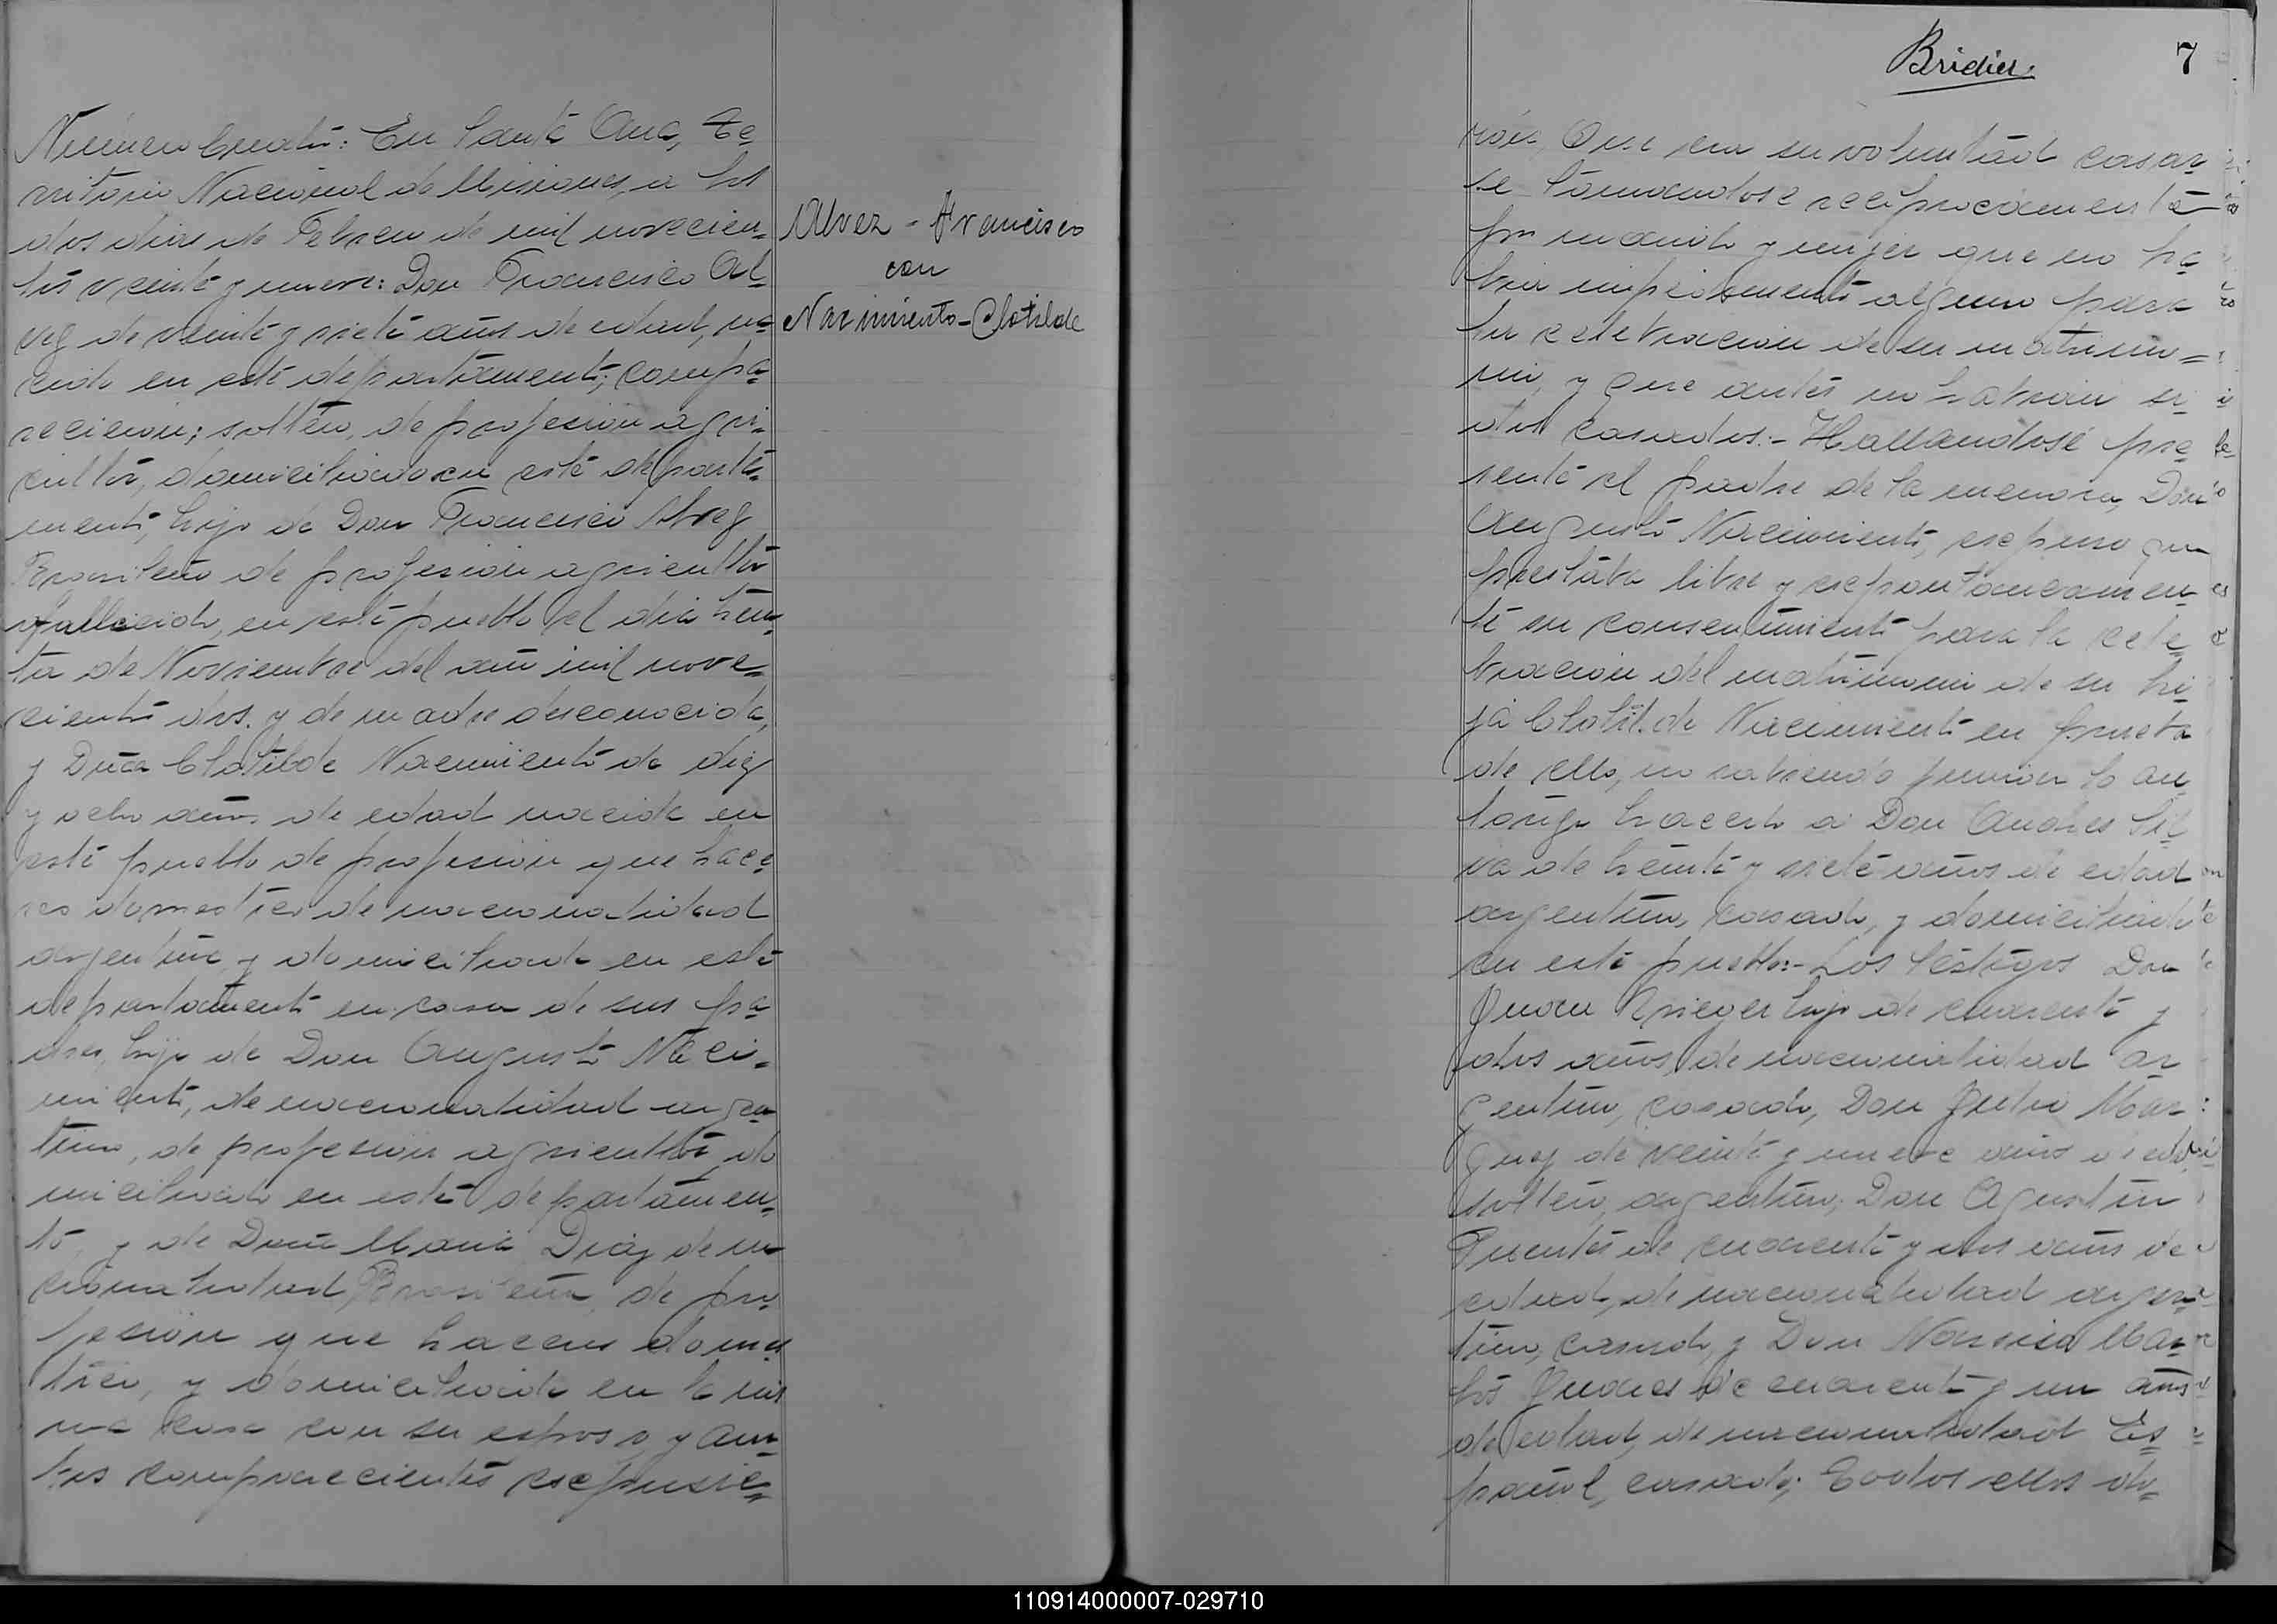 Número Cuatro: En Santa Ana, Te=
rritorio Nacional de Misiones, a los
dos dias de Febrero de mil novecien=
tos veinte y nueve: Don Francisco Al=
vez de veinte y siete años de edad, na=
cido en este departamento; compa=
recieron; soltero, de profesion agri=
cultor, domiciliado en este departa=
mento, hijo de Don Francisco Alvez
Brasileño de profesion agricultor
fallecido, en este pueblo el dia trein=
ta de Noviembre del año mil nove=
cientos dos. y de madre desconocida,
y Doña Clotilde Nacimiento de diez
y ocho años de edad nacida en
este pueblo de profesion que hace=
res domestico de nacionalidad
argentina y domiciliada en este
departamento en casa de sus pa=
dres, hija de Don Augusto Naci=
miento, de nacionalidad argen=
tino, de profesion agricultor do
miciliado en este departamen=
to, y de Doña Maria Diaz de na
cionalidad Brasileña, de pro=
fesion que haceres domes
tico, y domiciliada en la mis
ma casa con su esposo, y am=
bos comparecientes expusie=
Alvez - Francisco
con
Nacimiento - Clotilde
Bridier
7
rón, Que era su voluntad casar
se tomandose reciprocamente
por marido y mujer que no ha=
bia impedimento alguno para
la celebracion de su matrimo=
nio, y que antes no habian si=
dos casados.- Hallandose pre=
sente el padre de la menora, Don
Augusto Nacimiento, expuso que
prestaba libre y espontaneamen=
te su consentimiento para la cele=
bracion del matrimonio de su hi=
ja Clotilde Nacimiento en prueba
de ello, no sabiendo firmar lo au=
toriza hacerlo a Don Andres Sil
va de treinta y siete años de edad
argentino, casado, y domiciliado
en este pueblo:- Los testigos Don
Juan Krieger hijo de cuarenta y
dos años, de nacionalidad ar
gentino, casado, Don Julio Mar
quez de veinte y nueve años de edad,
soltero, argentino; Don Agustin
Fuentes de cuarenta y dos años de
edad, de nacionalidad argen=
tino, casado, y Don Narciso Mar=
tos Juanes de cuarenta y un años
de edad, de nacionalidad Es=
pañol, casado; Todos ellos do=
110914000007-029710